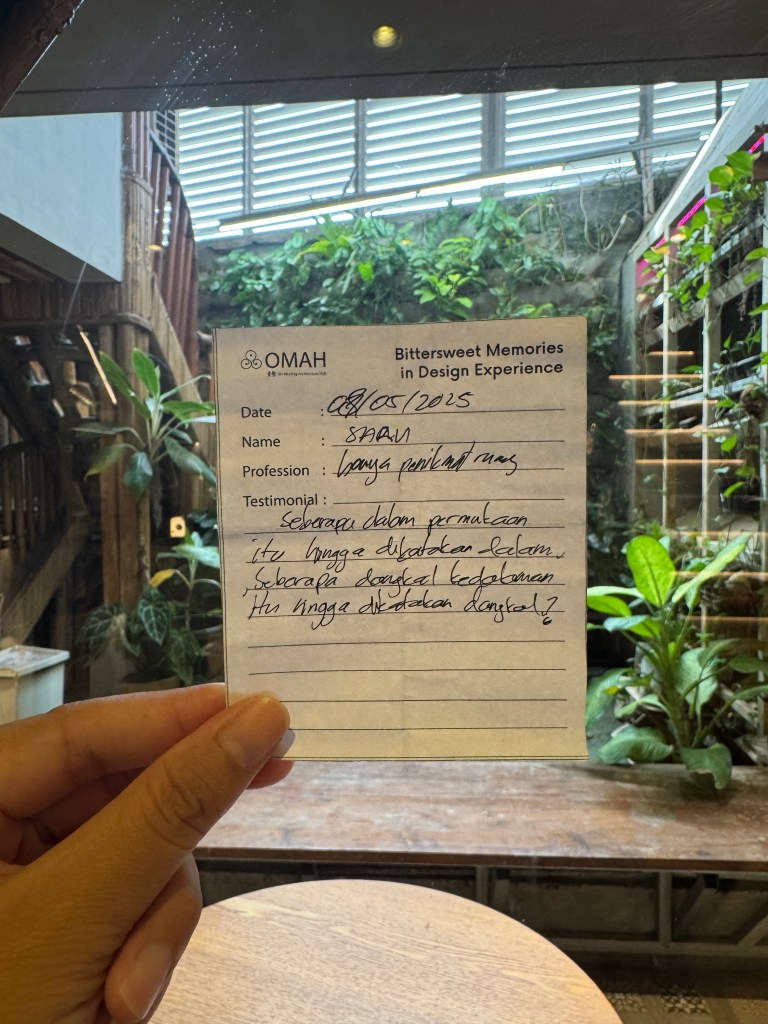 OMAH
Bittersweet Memories
in Design Experience
Date : 08/05/2025
Name :
Profession : hanya penikmat ruang
Testimonial :
Seberapa dalam permukaan
itu hingga dikatakan dalam,
Seberapa dangkal kedalaman
itu hingga dikatakan dangkal?